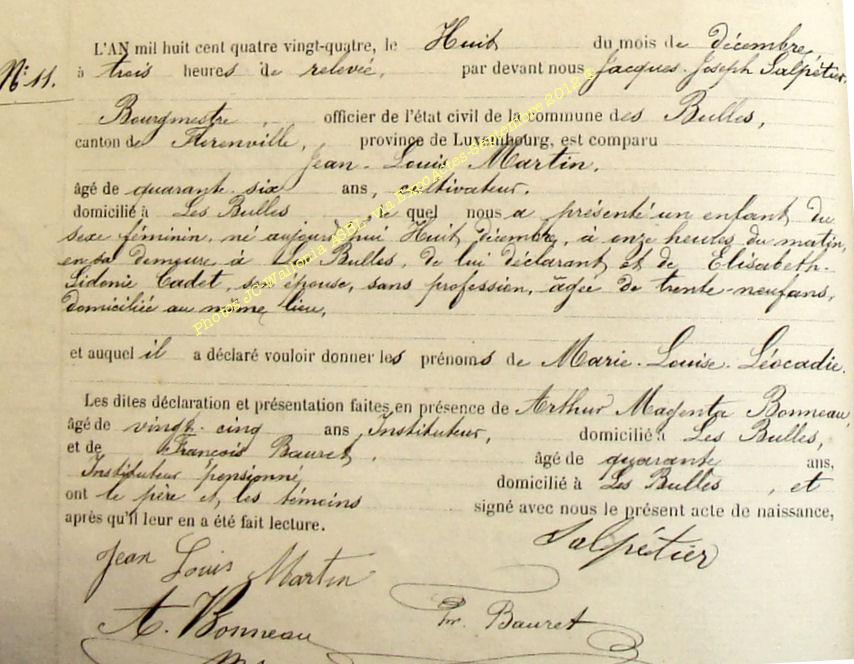 L'AN mil huit cent quatre vingt-quatre, le Huit du mois de décembre,
N° 11. à trois heures de relevée, par devant nous Jacques-Joseph Salpétier,
Bourgmestre, officier de l'état civil de la commune des Bulles,
canton de Florenville, province de Luxembourg, est comparu
Jean-Louis Martin,
âgé de quarante six ans, cultivateur,
domicilié à Les Bulles le quel nous a présenté un enfant du
sexe féminin, né aujourd'hui Huit décembre, à onze heures du matin,
en sa demeure à Les Bulles, de lui déclarant et de Elisabeth-
Sidonie Cadet, son épouse, sans profession, âgée de trente-neuf ans,
domiciliée au même lieu,
et auquel il a déclaré vouloir donner les prénoms de Marie-Louise-Léocadie.
Les dites déclaration et présentation faites en présence de Arthur Magenta Bonneau,
âgé de vingt-cinq ans, Instituteur, domicilié à Les Bulles,
et de François Bauret, âgé de quarante ans,
Instituteur pensionné, domicilié à Les Bulles, et
ont le père et les témoins signé avec nous le présent acte de naissance,
après qu'il leur en a été fait lecture.
Salpétier
Jean Louis Martin
A. Bonneau
Fr. Bauret